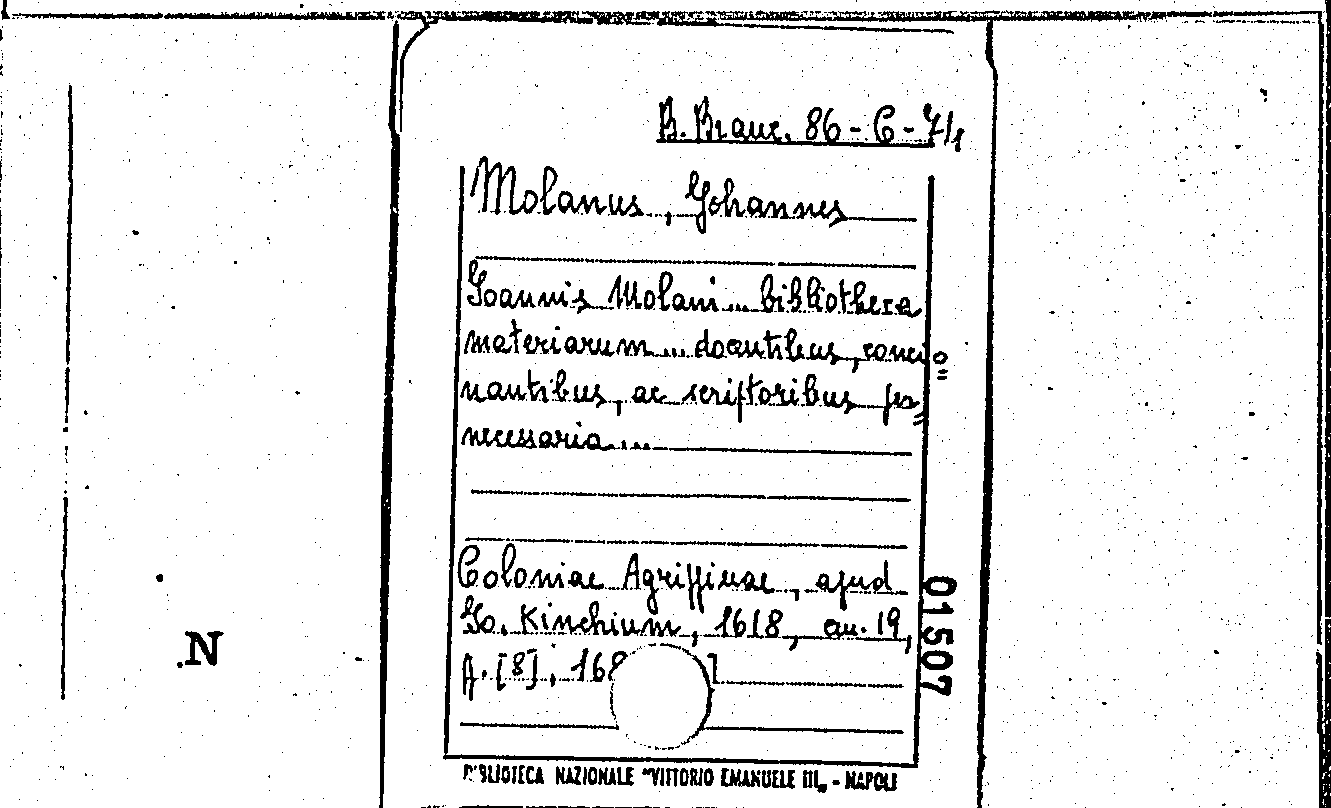 B. Branc. 86-C-7/1
Molanus, Johannes
Joannis Molani... bibliotheca
materiarum... docentibus, concio=
nantibus, ac scriptoribus per=
necessaria....
Coloniae Agrippinae, apud
Jo. Kinchium, 1618, cm. 19,
p. [8], 168 ]
01507
N
BIBLIOTECA NAZIONALE "VITTORIO EMANUELE III„ - NAPOLI